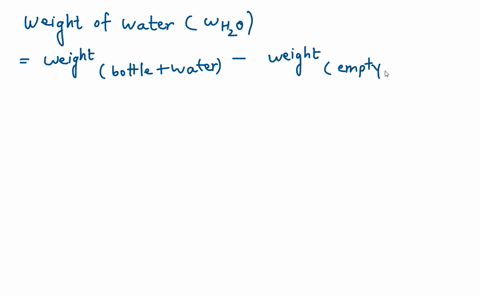 Weight of water (WH₂O)
= weight (bottle + water) − weight (empty